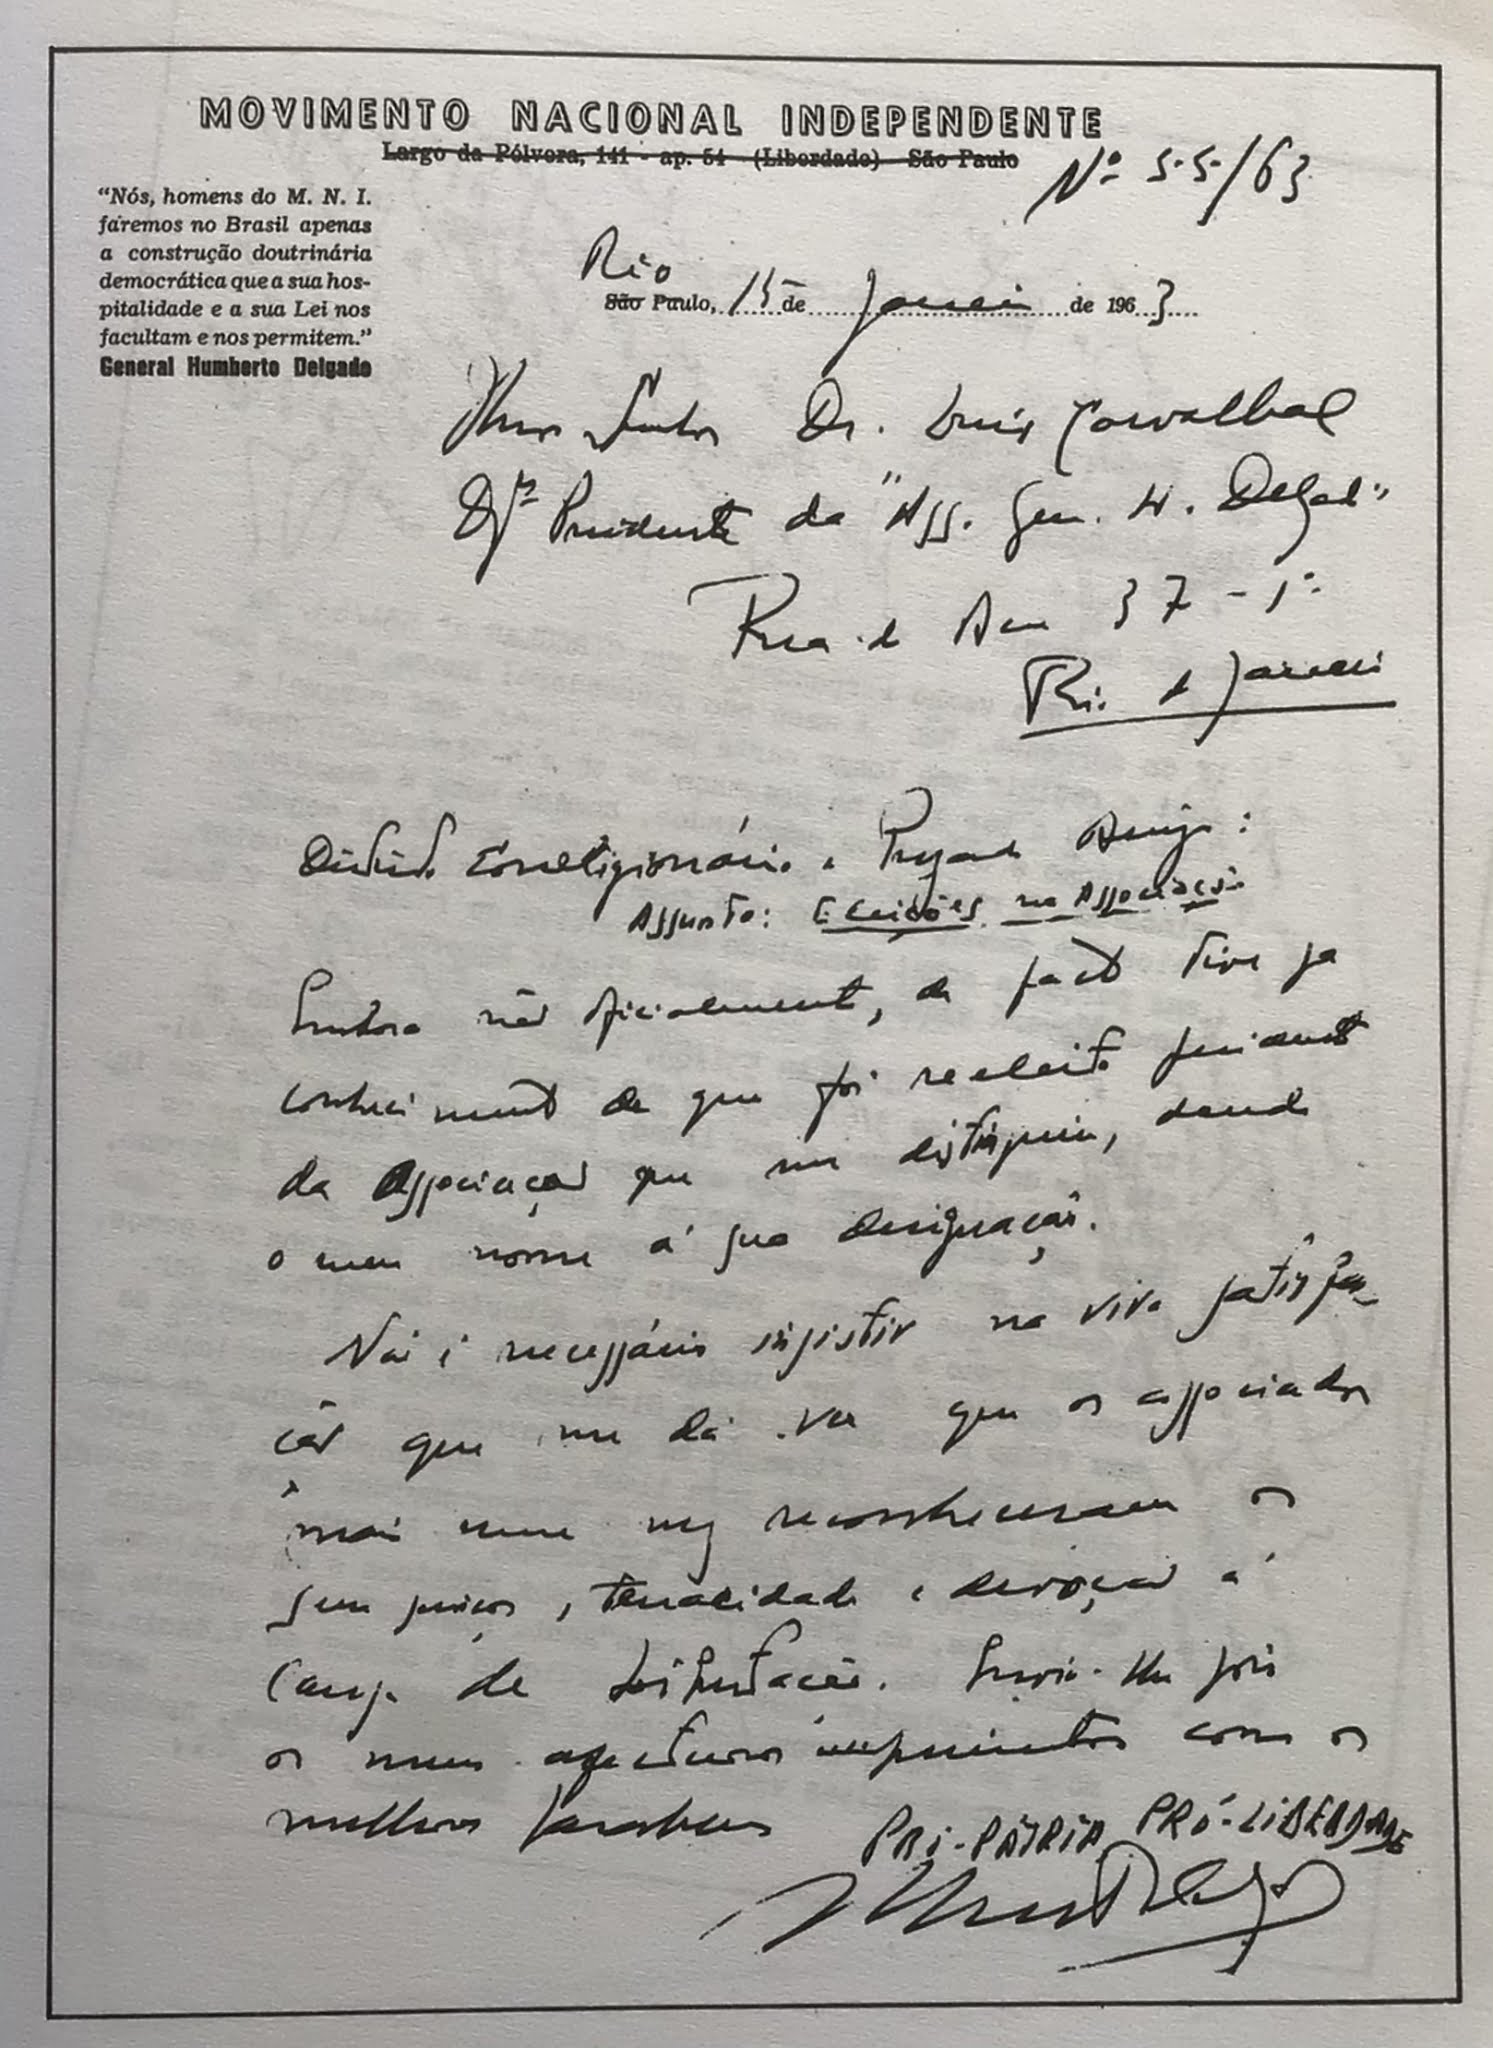 MOVIMENTO NACIONAL INDEPENDENTE
Largo da Pólvora, 141 - ap. 54 (Liberdade) São Paulo
Nº 5-S/63
"Nós, homens do M. N. I.
faremos no Brasil apenas
a construção doutrinária
democrática que a sua hos-
pitalidade e a sua Lei nos
facultam e nos permitem."
General Humberto Delgado
Rio
São Paulo, 15 de Janeiro de 1963
Senhor Dr. Luis Carvalhal
Presidente da "Ass. Gen. H. Delgado"
Rua 37 - 1º
Rio de Janeiro
Correligionário e Prezado Amigo:
Assunto: Eleições na Associação
Embora não oficialmente, de facto tive já
conhecimento de que foi reeleito presidente
da Associação que me distinguiu, dando
o meu nome à sua designação.
Não é necessário insistir na viva satisfa-
ção que me dá ver que os associados
mais uma vez reconheceram os
seus serviços, tenacidade e devoção à
Causa de Libertação. Envio-lhe pois
os meus afectuosos cumprimentos com os
melhores parabens
PRÓ-PÁTRIA PRÓ-LIBERDADE